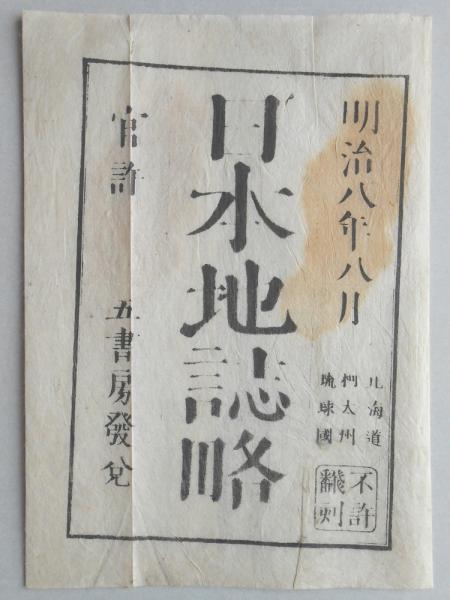 明治八年八月
北海道
樺太州
琉球國
不許
飜刻
日本地誌略
官許 五書房發兌